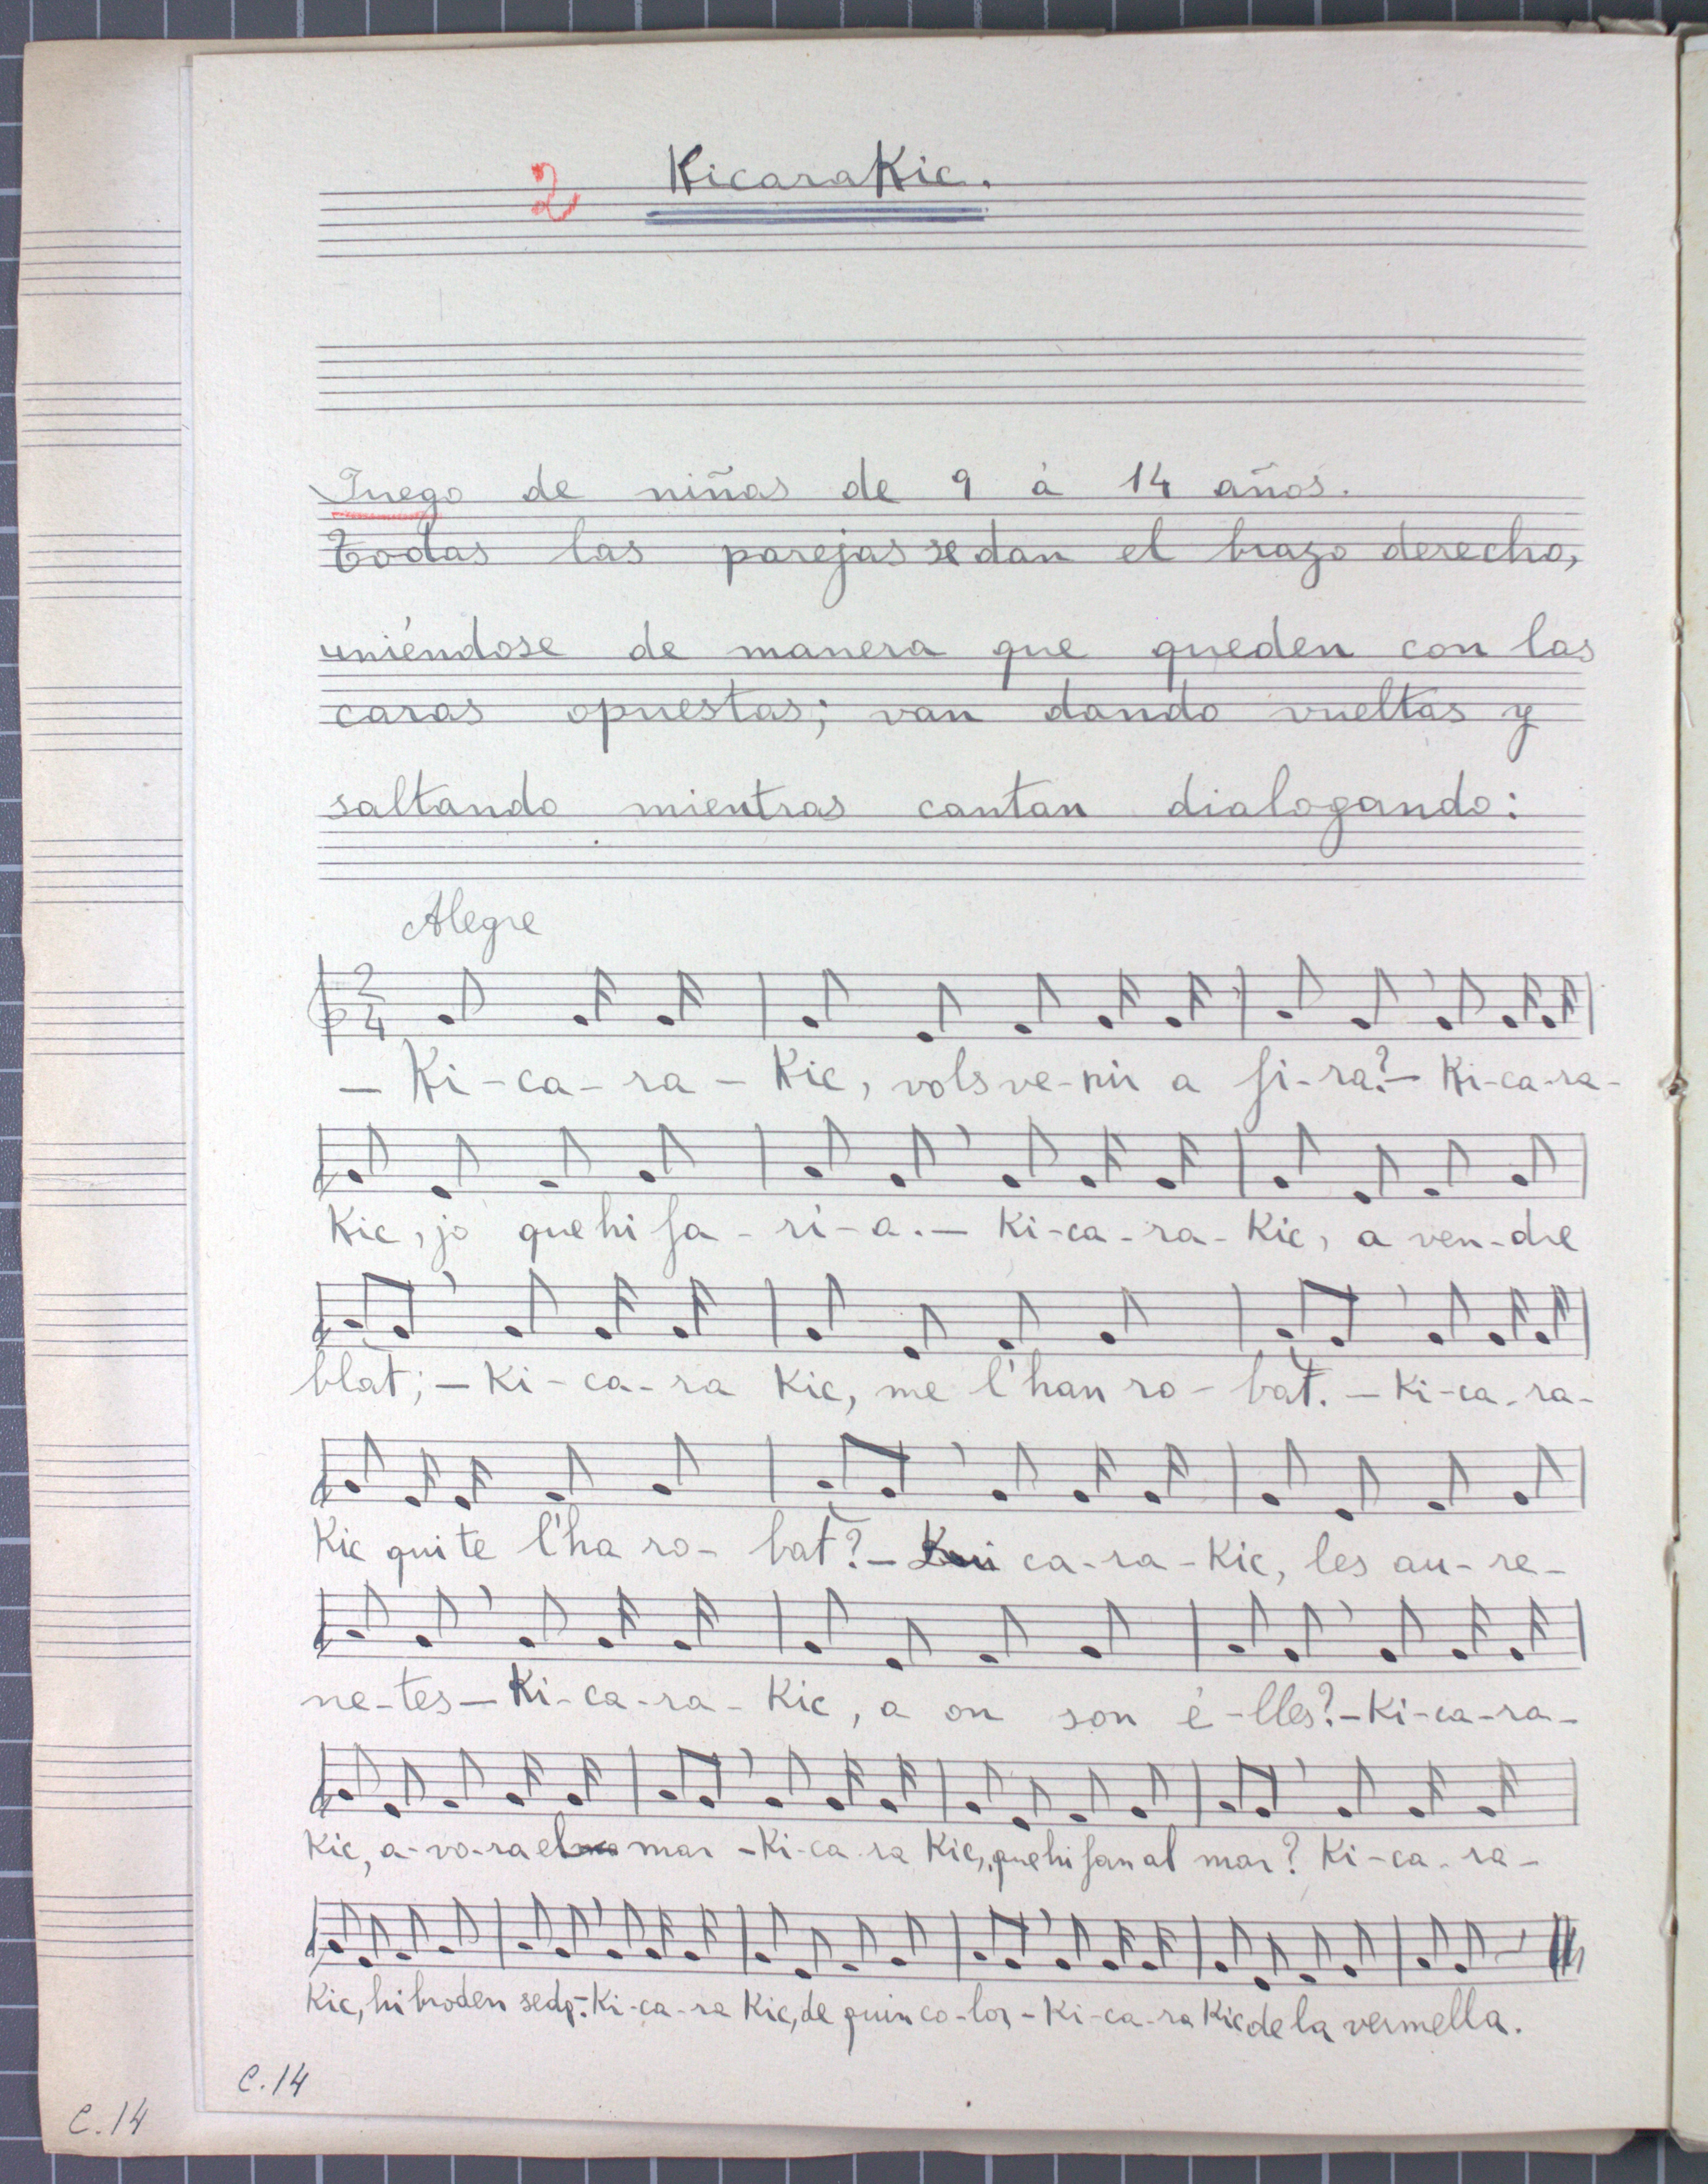 2 KicaraKic.
Juego de niñas de 9 á 14 años.
Todas las parejas se dan el brazo derecho,
uniéndose de manera que queden con las
caras opuestas; van dando vueltas y
saltando mientras cantan dialogando:
Alegre
2
4
– Ki-ca-ra-Kic, vols ve-nir a fi-ra? – Ki-ca-ra-
Kic, jo que hi fa-rí-a. – Ki-ca-ra-Kic, a ven-dre
blat; – Ki-ca-ra Kic, me l'han ro-bat. – Ki-ca-ra-
Kic qui te l'ha ro-bat? – ca-ra-Kic, les au-re-
ne-tes – Ki-ca-ra-Kic, a on son é-lles? – Ki-ca-ra-
Kic, a-vo-ra el mar – Ki-ca-ra Kic, que hi fan al mar? Ki-ca-ra-
Kic, hi broden seda. – Ki-ca-ra Kic, de quin co-lor, – Ki-ca-ra Kic de la vermella.
C.14
C.14